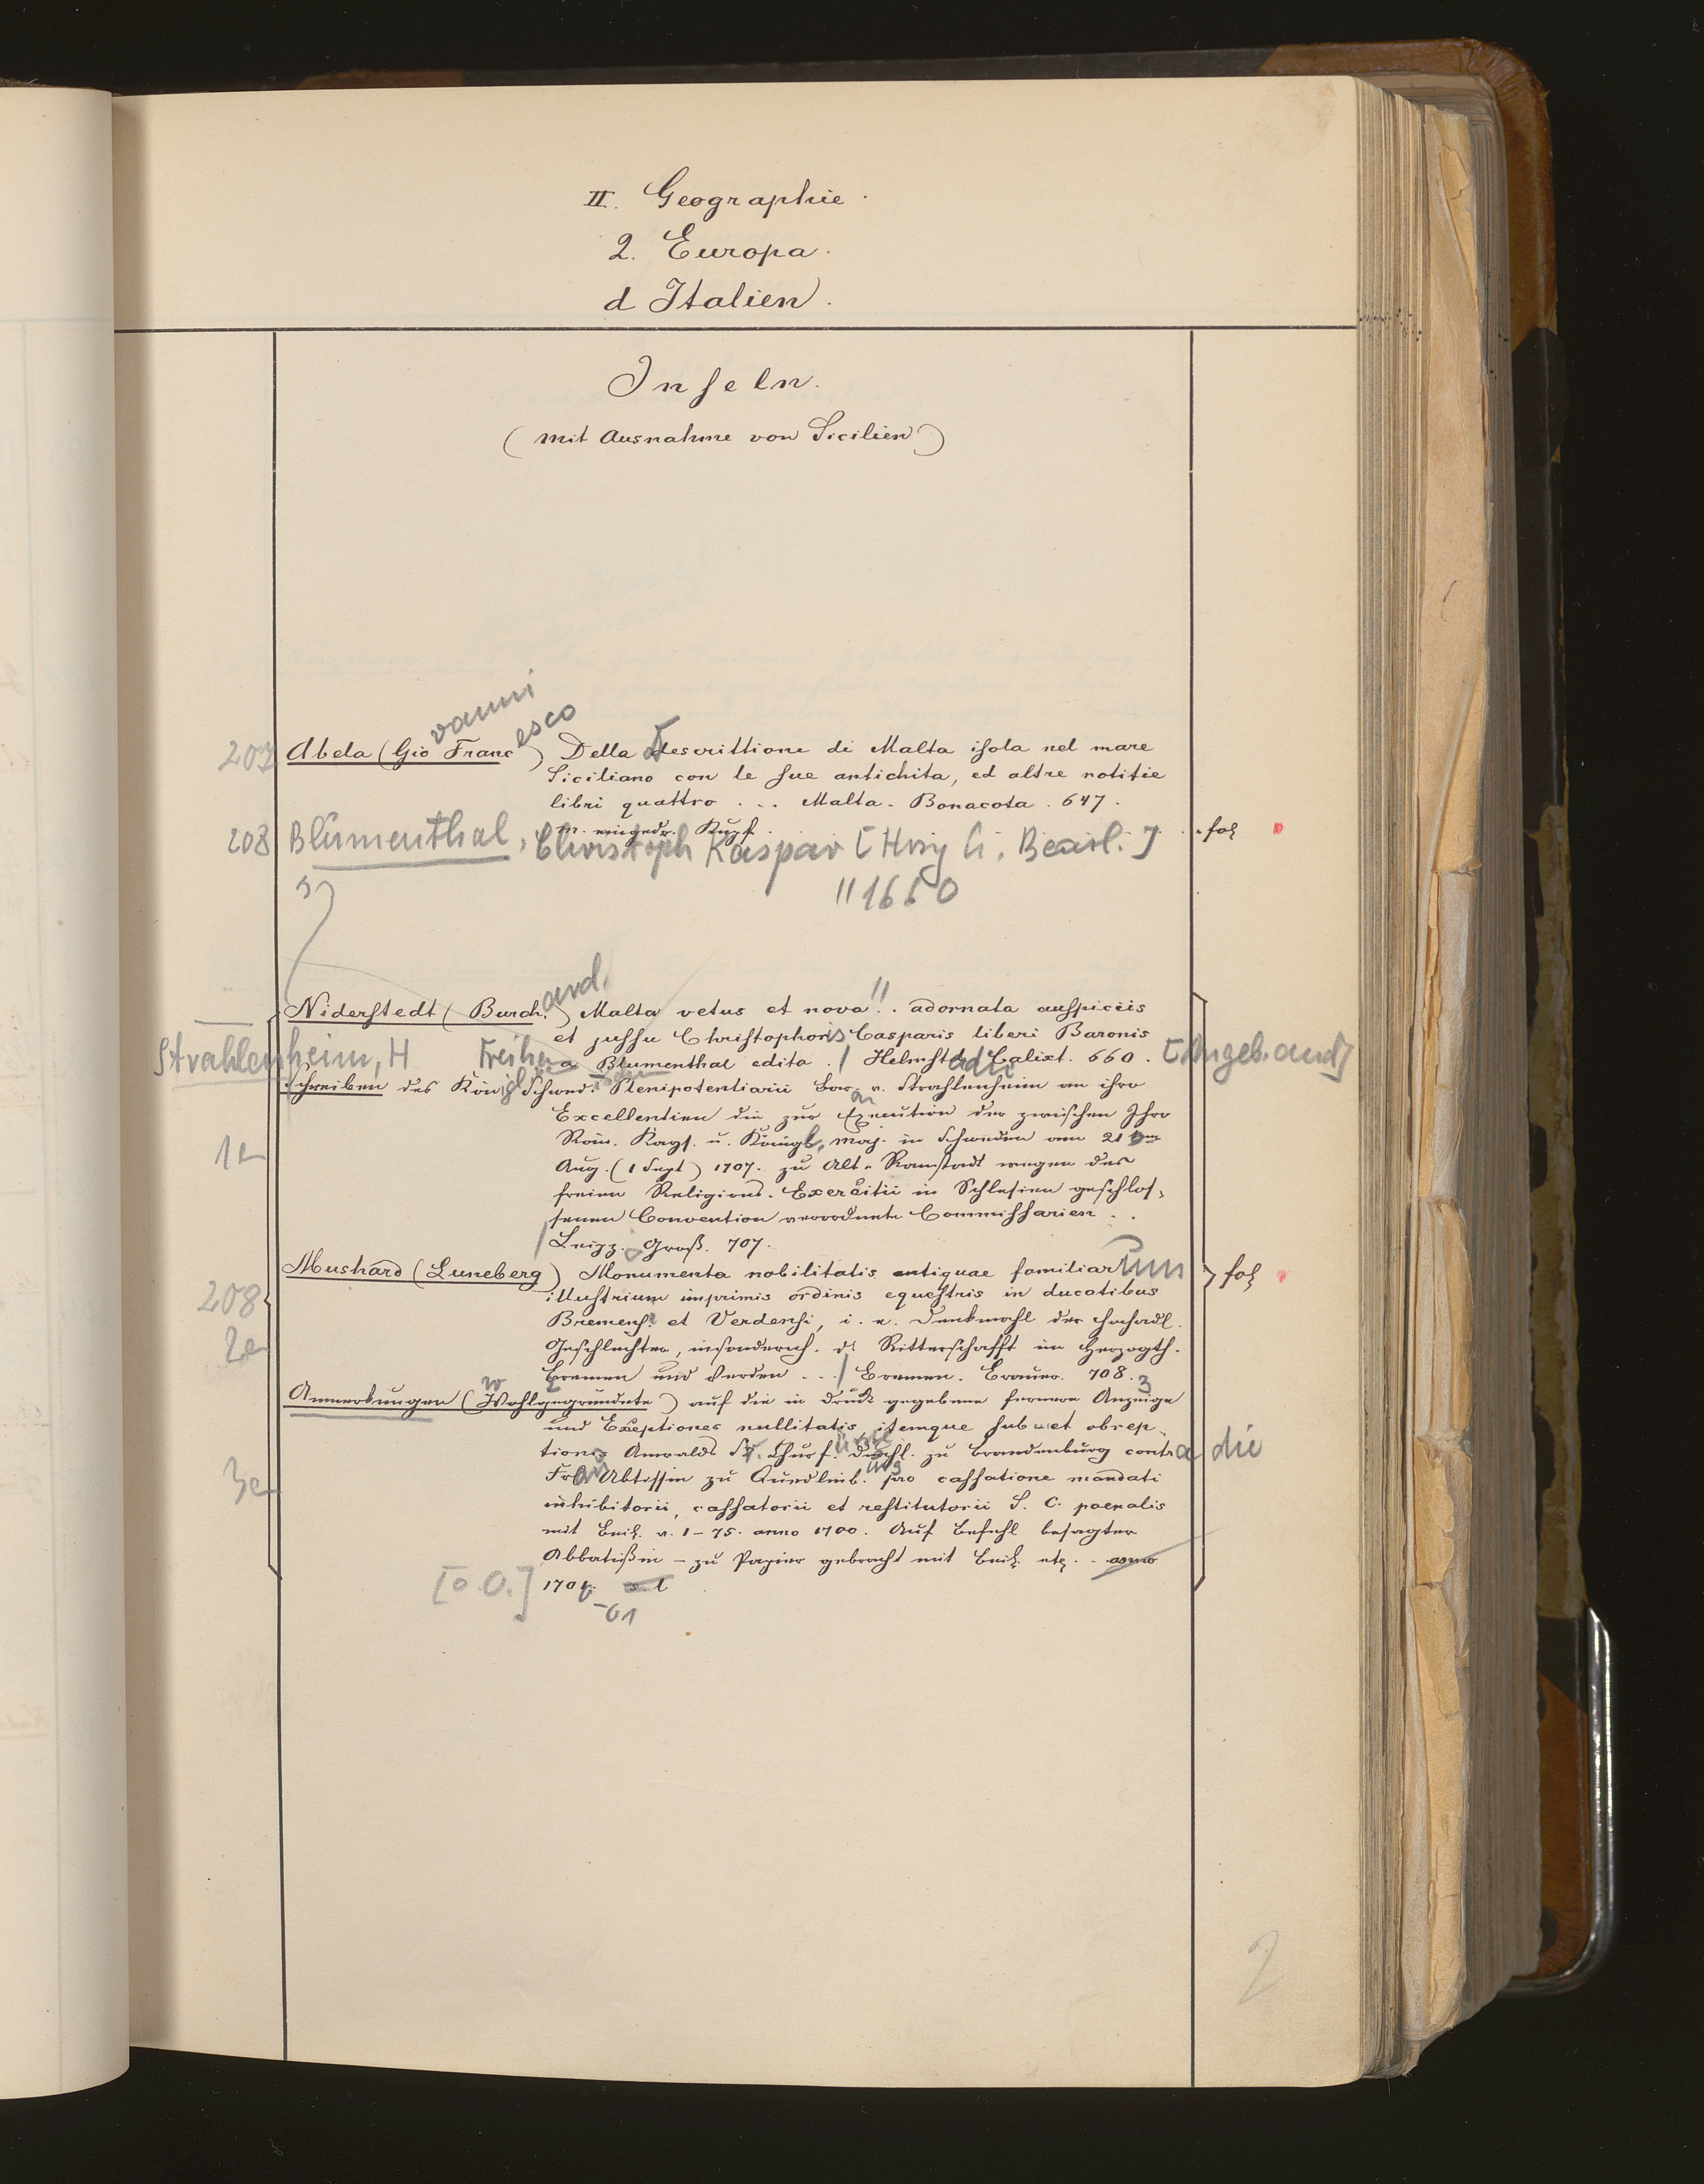 II. Geographie.
2. Europa.
d Italien.
Inseln.
(mit Ausnahme von Sicilien)
vanni
esco
207 Abela (Gio Franc) Della Descrittione di Malta isola nel mare
Siciliano con le sue antichita, ed altre notitie
libri quattro . . . Malta. Bonacota. 647.
m. eingedr. Kupf. . . fol
208 Blumenthal, Christoph Kaspar [Hrsg u. Bearb.]
" 1660
ard.
Niderstedt (Burch.) Malta vetus et nova " . adornata auspiciis
et jussu Christophoris Casparis liberi Baronis
a Blumenthal edita. / Helmstadti Calixt. 660. [Angeb. and]
Strahlenheim, H Freiherr
Schreiben des Königl Schwed. Plenipotentiarii Bar. v. Strahlenheim an ihro
Excellentien die zur Execution der zwischen Ihro
1e Röm. Kays. u. Königl. Maj. in Schweden am 21 ten
Aug. (1 Sept) 1707. zu Alt-Ranstadt wegen des
freien Religions-Exercitii in Schlesien geschlos-
senen Convention verordnete Commissarien . .
/ Leipz. Groß. 707.
208 Mushard (Luneberg) Monumenta nobilitatis antiquae familiarum fol
illustrium imprimis ordinis equestris in ducatibus
2e Bremens. et Verdensi, i. e. Denkmahl der hochadl.
Geschlechter, insonderh. d. Ritterschafft im Herzogth.
Bremen und Verden . . . / Bremen. Brauer. 708.
3
Anmerkungen (Wohlgegründete) auf die in Druck gegebene fernere Anzeige
und Exeptiones nullitatis, itemque sub- et obrep-
tionis Anwalds Sr. Churf. Durchl. zu Brandenburg contra die
3e Frau Abtissin zu Quedlinb. pro cassatione mandati
inhibitorii, cassatorii et restitutorii S. C. poenalis
mit Beil. n. 1-75. anno 1700. Auf Befehl besagter
Abbatißin - zu Papier gebracht mit Beil. etz. . anno
[o O.] 170 s. l
-01
2